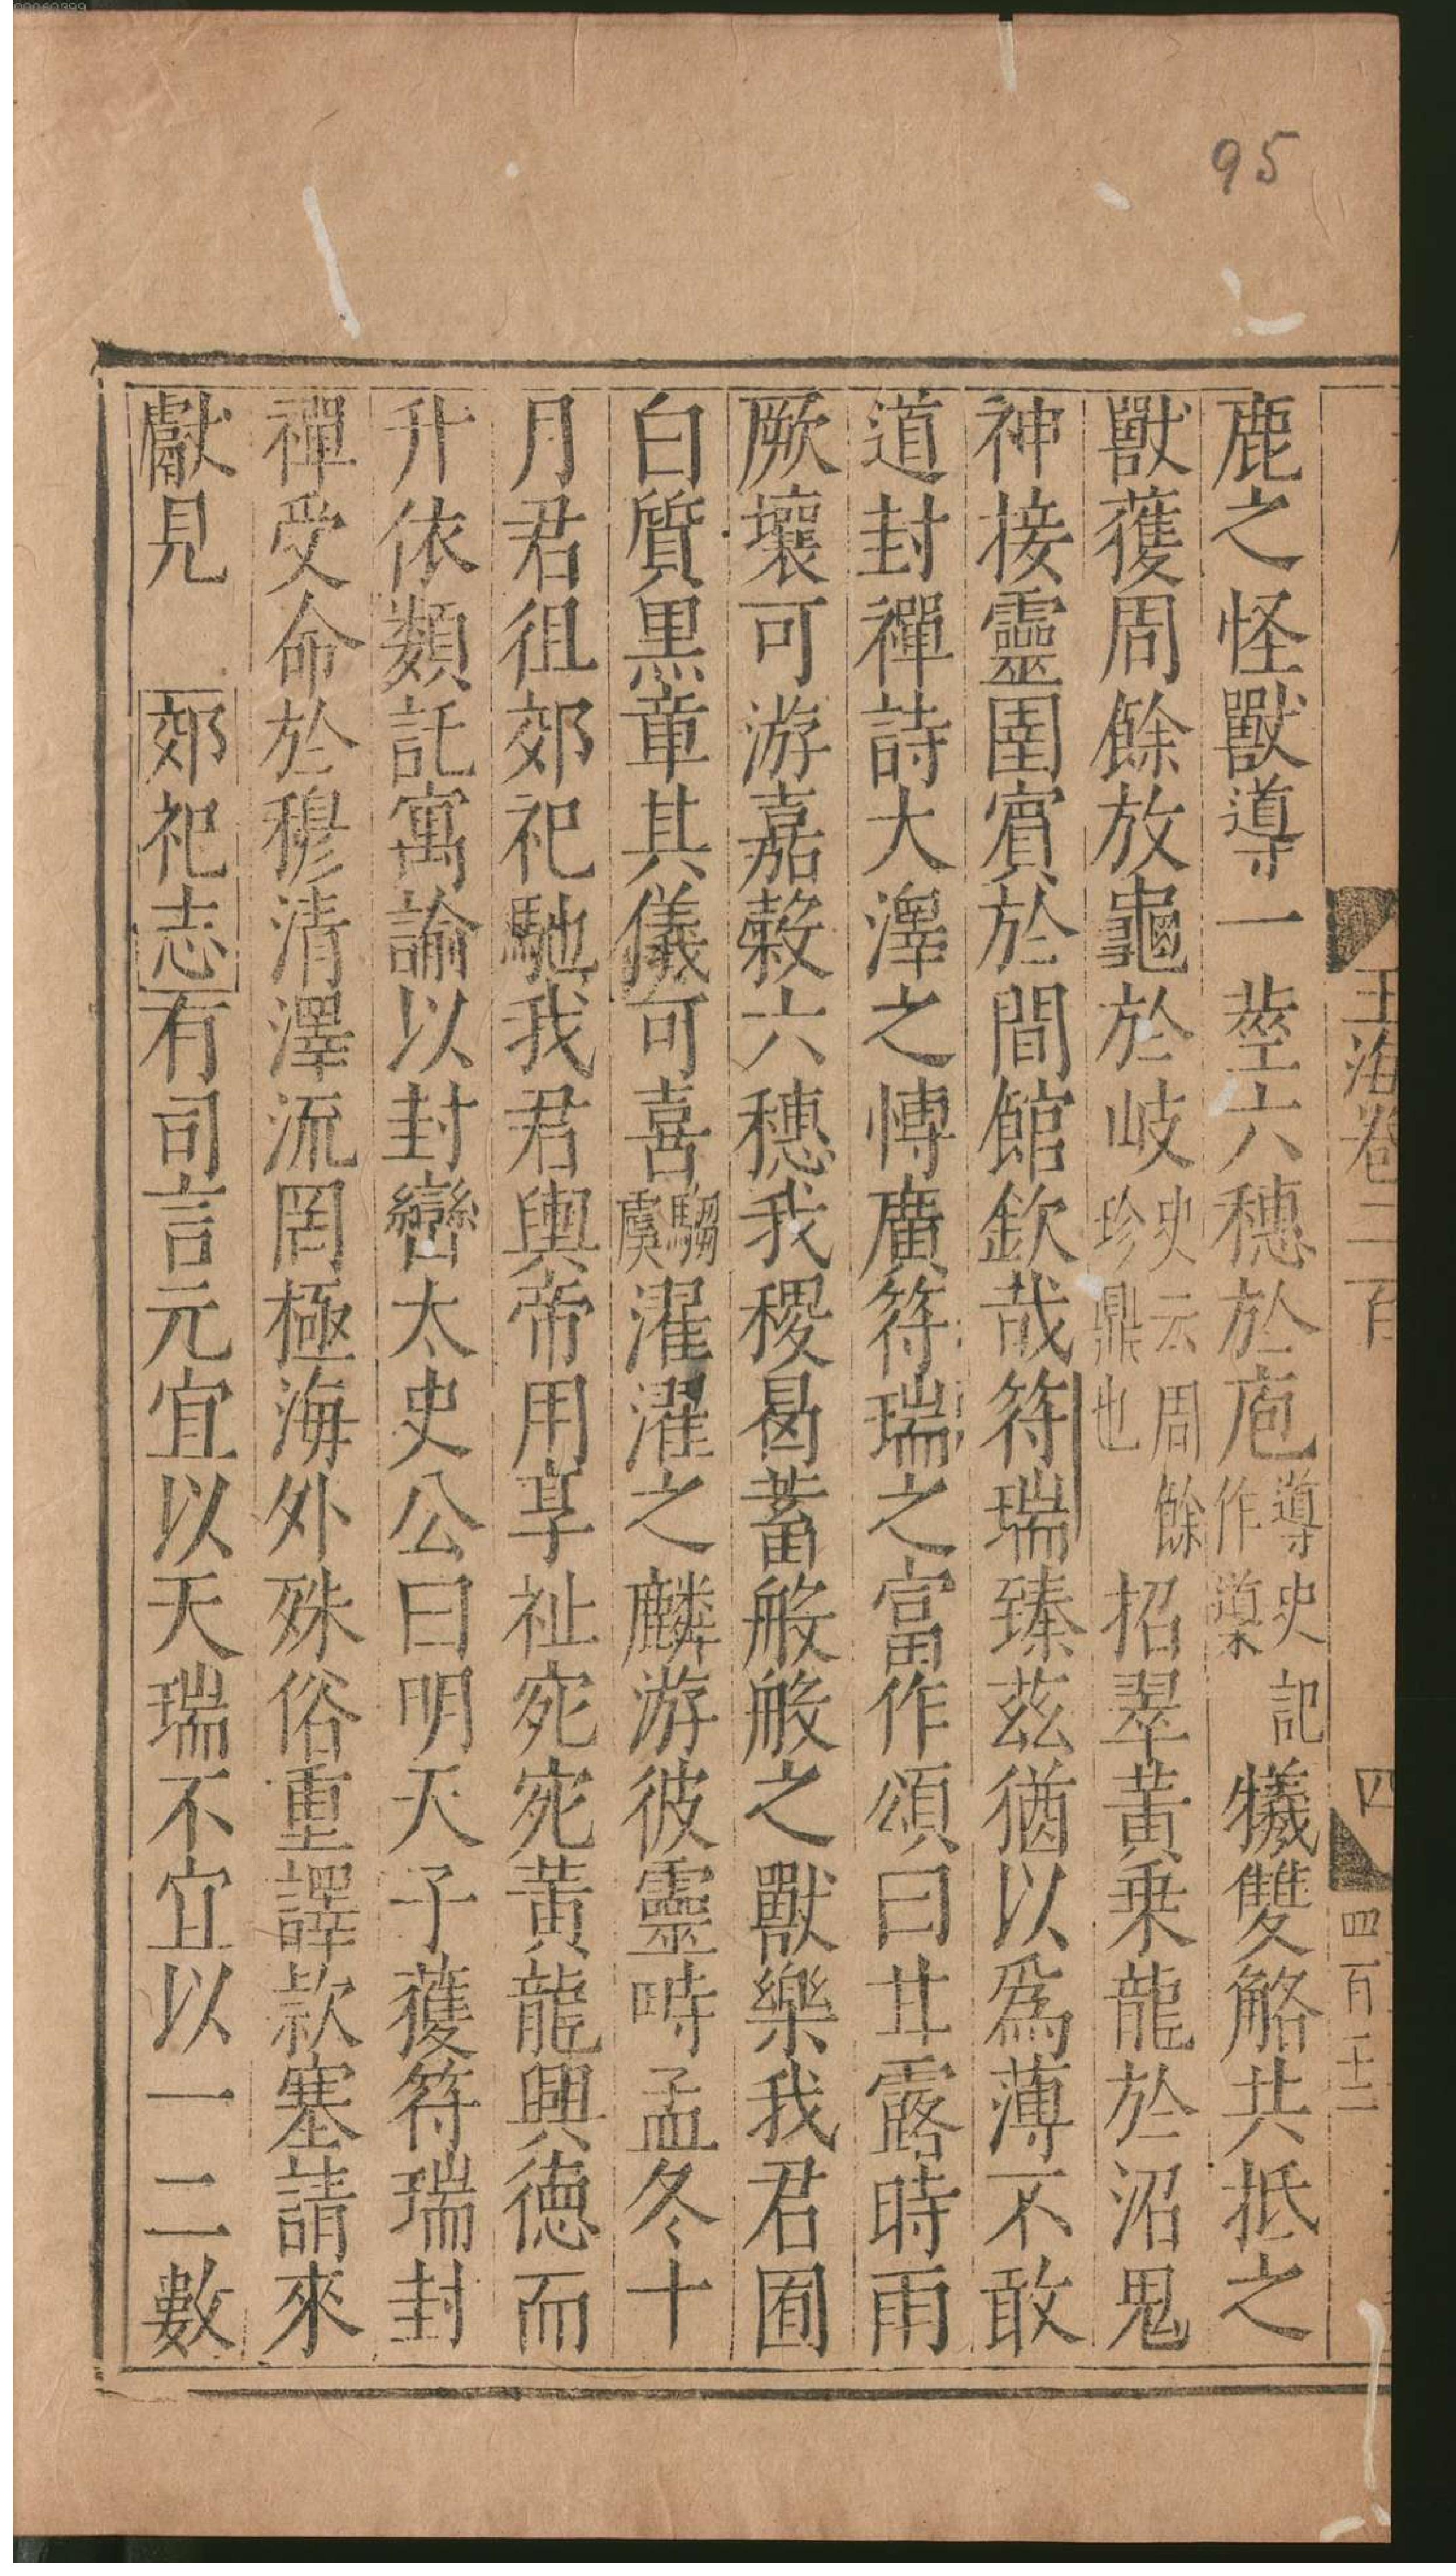 00060399
95
玉海卷二百
四
四百十二
鹿之怪獸導一莖六穗於庖導史記作䆃犧雙觡共抵之
獸獲周餘放龜於岐史云周餘珍鼎也招翠黃乗龍於沼鬼
神接靈圉賓於閒館欽哉符瑞臻茲猶以爲薄不敢
道封禪詩大澤之愽廣符瑞之富作頌曰甘露時雨
厥壤可游嘉榖六穗我稷曷蓄般般之獸樂我君囿
白質黒章其儀可喜騶虞濯濯之麟游彼靈畤孟冬十
月君徂郊祀馳我君輿帝用享祉宛宛黃龍興徳而
升依類託寓諭以封巒太史公曰明天子獲符瑞封
禪受命於穆清澤流罔極海外殊俗重譯款塞請來
獻見 郊祀志有司言元宜以天瑞不宜以一二數